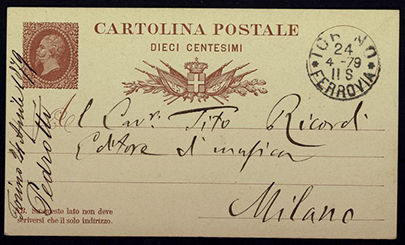 CARTOLINA POSTALE
DIECI CENTESIMI
TORINO
24
4 -79
11 S
FERROVIA
Torino 24 Aprile 1879
Pedrotti
Al Cavr. Tito Ricordi
Editore di musica
Milano
NB. Su questo lato non deve
scriversi che il solo indirizzo.